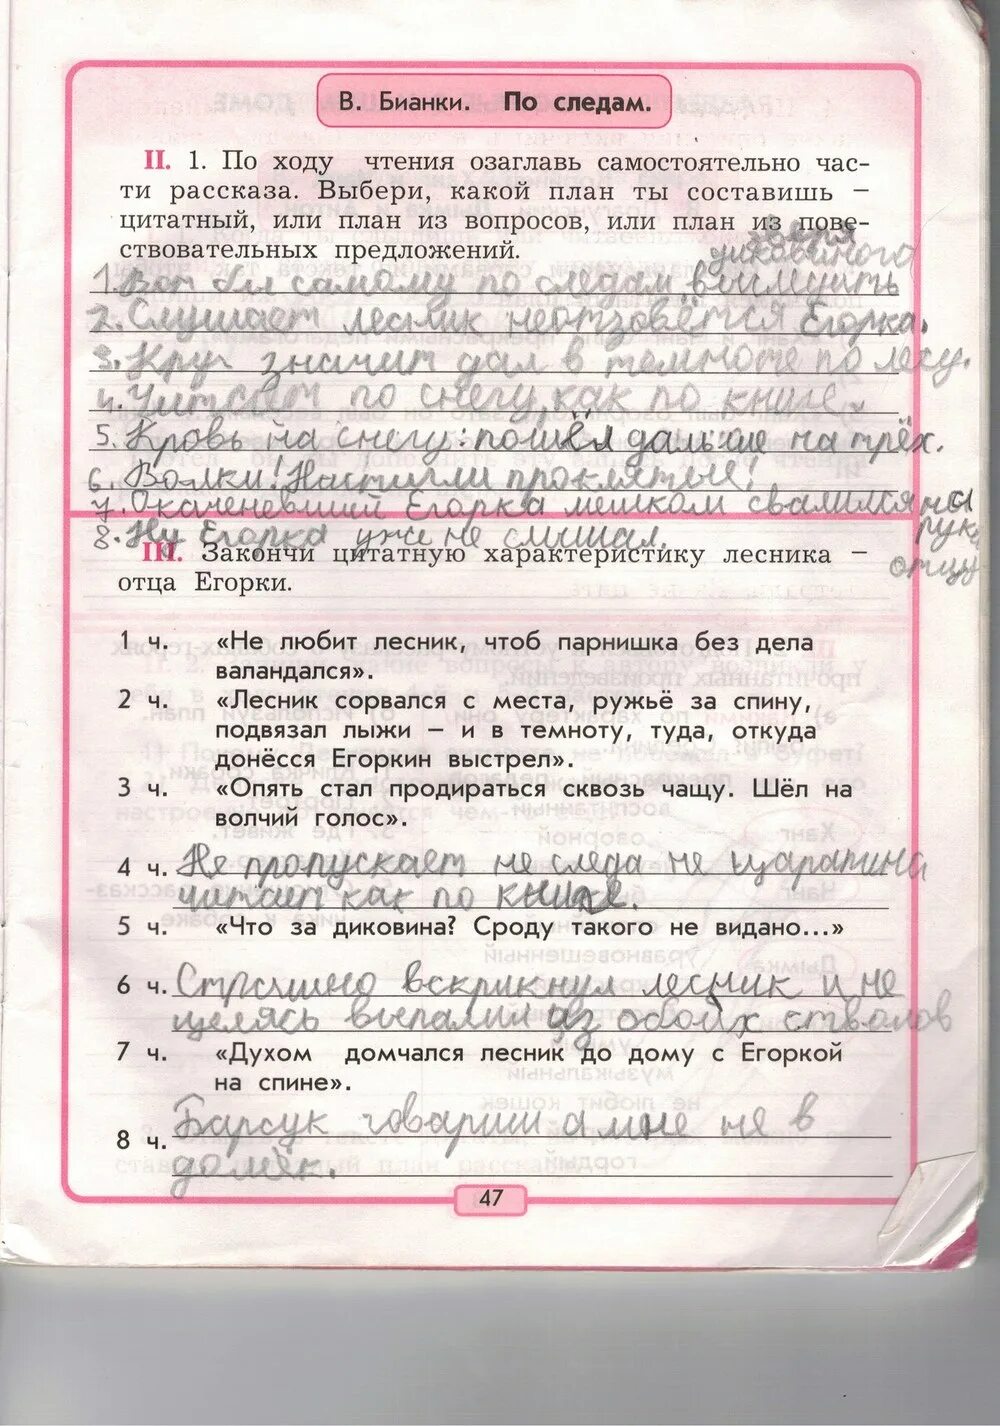 В. Бианки. По следам.
II. 1. По ходу чтения озаглавь самостоятельно час-
ти рассказа. Выбери, какой план ты составишь –
цитатный, или план из вопросов, или план из пове-
ствовательных предложений.
зверя
диковиного
1. Вот бы самому по следам выследить
2. Слушает лесник неотзовётся Егорка.
3. Круг значит дал в темноте по лесу.
4. Читает по снегу, как по книге
5. Кровь на снегу: пошёл дальше на трёх.
6. Волки! Настигли проклятые!
7. Окаченевший Егорка мешком свалился на
руки
отцу
8. Ну Егорка уже не слышал.
III. Закончи цитатную характеристику лесника –
отца Егорки.
1 ч. «Не любит лесник, чтоб парнишка без дела
валандался».
2 ч. «Лесник сорвался с места, ружьё за спину,
подвязал лыжи – и в темноту, туда, откуда
донёсся Егоркин выстрел».
3 ч. «Опять стал продираться сквозь чащу. Шёл на
волчий голос».
4 ч. Не пропускает не следа не щарапина
читает как по книге.
5 ч. «Что за диковина? Сроду такого не видано...»
6 ч. Страшно вскрикнул лесник и не
целясь выпалил из обоих стволов
7 ч. «Духом домчался лесник до дому с Егоркой
на спине».
8 ч. Барсук говариш а мне не в
домёк.
47